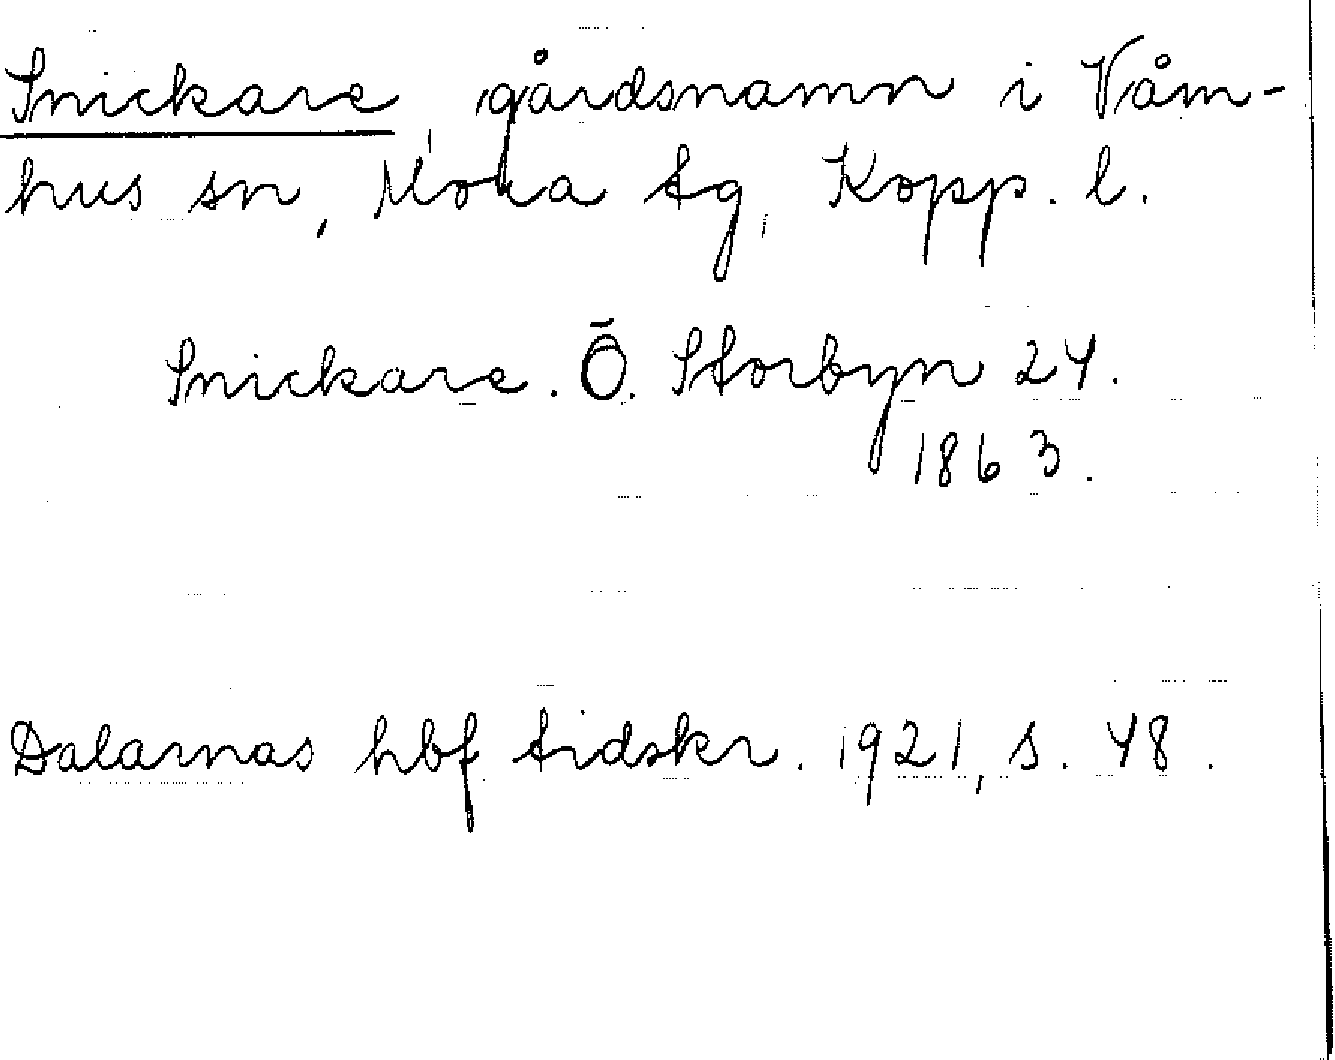 Snickare, gårdsnamn i Våm-
hus sn, Mora tg, Kopp. l.
Snickare. Ö. Storbyn 24.
1863.
Dalarnas hbf tidskr. 1921, s. 48.